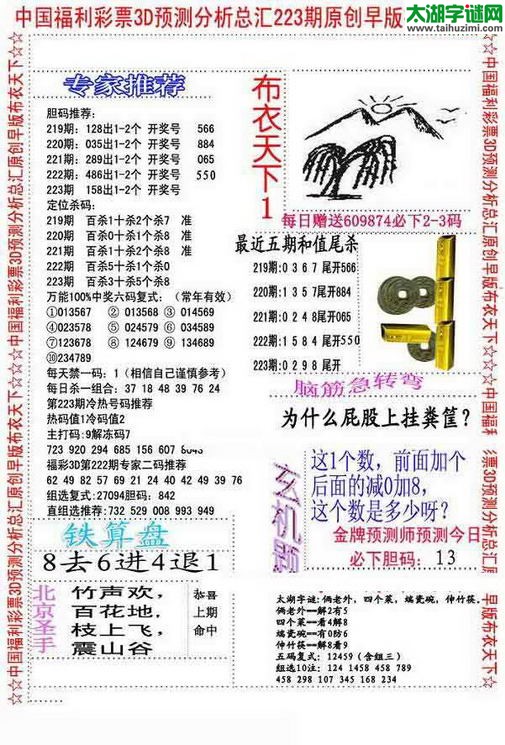 中国福利彩票3D预测分析总汇223期原创早版
太湖字谜网
www.taihuzimi.com
专家推荐
胆码推荐:
219期: 128出1-2个 开奖号 566
220期: 035出1-2个 开奖号 884
221期: 289出1-2个 开奖号 065
222期: 486出1-2个 开奖号 550
223期 158出1-2个 开奖号
定位杀码:
219期 百杀1十杀2个杀7 准
220期 百杀1十杀6个杀7 准
221期 百杀1十杀2个杀8 准
222期 百杀5十杀1个杀0
223期 百杀3十杀5个杀8
万能100%中奖六码复式: (常年有效)
①013567 ② 013568 ③ 014569
④023578 ⑤ 024579 ⑥ 034589
⑦123678 ⑧ 124679 ⑨ 134689
⑩234789
每天禁一码: 1(相信自己谨慎参考)
每日杀一组合: 37 18 48 39 76 24
第223期冷热号码推荐
热码值1冷码值2
主打码:9解冻码7
723 920 294 685 156 607
福彩3D第222期专家二码推荐
62 49 82 57 69 21 24 40 42 49 39 76
组选复式:27094胆码: 842
直组选推荐:732 529 008 993 949
铁算盘
8去6进4退1
北京圣手
竹声欢,
百花地,
枝上飞,
震山谷
恭喜
上期
命中
布衣天下1
每日赠送609874必下2-3码
最近五期和值尾杀
219期:0 3 6 7 尾开566
220期:1 3 5 7 尾开884
221期:0 2 4 8 尾开065
222期:1 5 8 4 尾开550
223期:0 2 9 8 尾开
脑筋急转弯
为什么屁股上挂粪筐?
玄机题
这1个数, 前面加个
后面的减0加8,
这个数是多少呀?
金牌预测师预测今日
必下胆码: 13
太湖字谜: 俩老外, 四个菜, 端瓷碗, 伸竹筷,
俩老外--解2有5
四个菜--看4解8
端瓷碗--有0防6
伸竹筷--解8看9
五码复式: 12459 (含组三)
组选10注: 124 1458 458 789
458 298 107 345 168 234
☆☆中国福利彩票3D预测分析总汇原创早版布衣天下☆☆
☆中国福利彩票3D预测分析总汇原创早版布衣天下☆☆☆中国福利
彩票3D预测分析总汇原
早版布衣天下☆☆